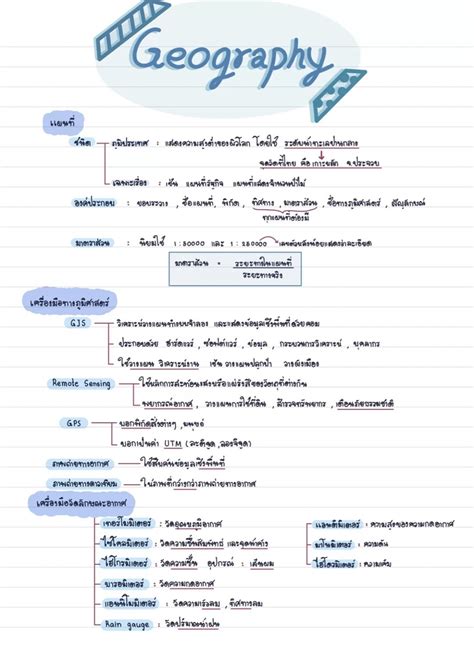 Geography
แผนที่
ชนิด ภูมิประเทศ : แสดงความสูงต่ำของผิวโลก โดยใช้ ระดับน้ำทะเลปานกลาง
จุดวัดที่ไทย คือ เกาะหลัก จ.ประจวบ
เฉพาะเรื่อง : เช่น แผนที่ธุรกิจ แผนที่แสดงจำนวนป่าไม้
องค์ประกอบ : ขอบระวาง , ชื่อแผนที่, พิกัด, ทิศทาง , มาตราส่วน , ชื่อทางภูมิศาสตร์ , สัญลักษณ์
ทุกแผนที่ต้องมี
มาตราส่วน : นิยมใช้ 1 : 50000 และ 1 : 250000 เลขตัวหลังน้อยแสดงว่าละเอียด
มาตราส่วน = ระยะทางในแผนที่
ระยะทางจริง
เครื่องมือทางภูมิศาสตร์
GIS วิเคราะห์วางแผนทำแบบจำลอง และแสดงข้อมูลเชิงพื้นที่ด้วยคอม
ประกอบด้วย ฮาร์ดแวร์ , ซอฟต์แวร์ , ข้อมูล , กระบวนการวิเคราะห์ , บุคลากร
ใช้วางแผน วิเคราะห์งาน เช่น วางแผนปลูกป่า วางผังเมือง
Remote Sensing ใช้หลักการสะท้อนแสงหรือแผ่รังสีของวัตถุที่ต่างกัน
พยากรณ์อากาศ , วางแผนการใช้ที่ดิน , สำรวจทรัพยากร , เตือนภัยธรรมชาติ
GPS บอกพิกัดสิ่งต่างๆ , มนุษย์
บอกเป็นค่า UTM (ละติจูด , ลองจิจูด)
ภาพถ่ายทางอากาศ ใช้สืบค้นข้อมูลเชิงพื้นที่
ภาพถ่ายทางดาวเทียม ให้ภาพที่กว้างกว่าภาพถ่ายทางอากาศ
เครื่องมือวัดลักษณะอากาศ
เทอร์โมมิเตอร์ : วัดอุณหภูมิอากาศ
ไซโครมิเตอร์ : วัดความชื้นสัมพัทธ์ และจุดน้ำค้าง
ไฮโกรมิเตอร์ : วัดความชื้น อุปกรณ์ : เส้นผม
บารอมิเตอร์ : วัดความกดอากาศ
แอนนิโมมิเตอร์ : วัดความเร็วลม , ทิศทางลม
Rain gauge : วัดปริมาณน้ำฝน
: ความสูงของความกดอากาศ
มาโนมิเตอร์ : ความดัน
ไฮโดรมิเตอร์ : ความเค็ม